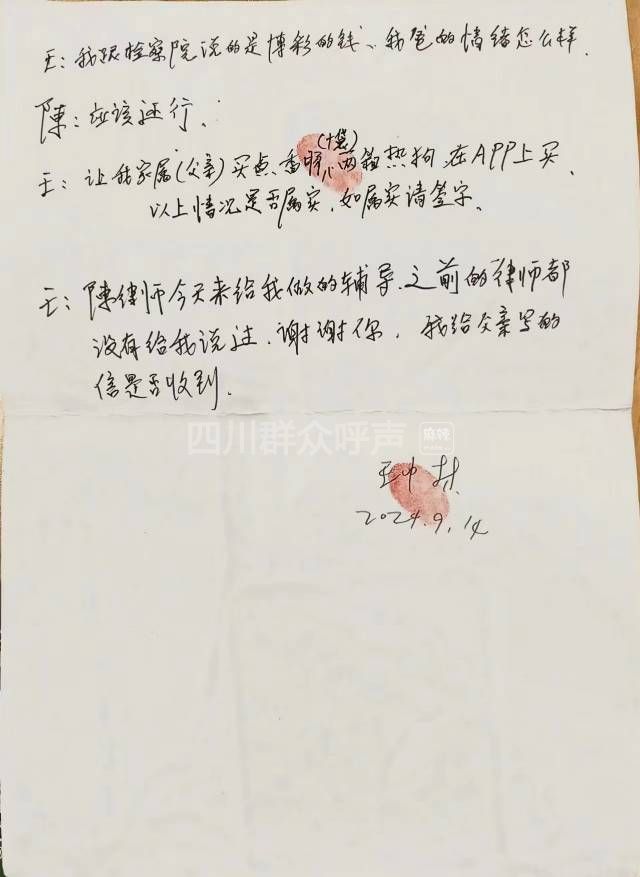 王：我跟检察院说的是博彩的钱、我爸的情绪怎么样.
陳：应该还行.
(十袋)
王：让我家属(父亲)买点.香肠.八两箱热狗.在APP上买.
以上情况是否属实.如属实请签字.
王：陳律师今天来给我做的辅导.之前的律师都
没有给我说过.谢谢你. 我给父亲写的
信是否收到.
四川群众呼声 麻辣
王中林
2024.9.14